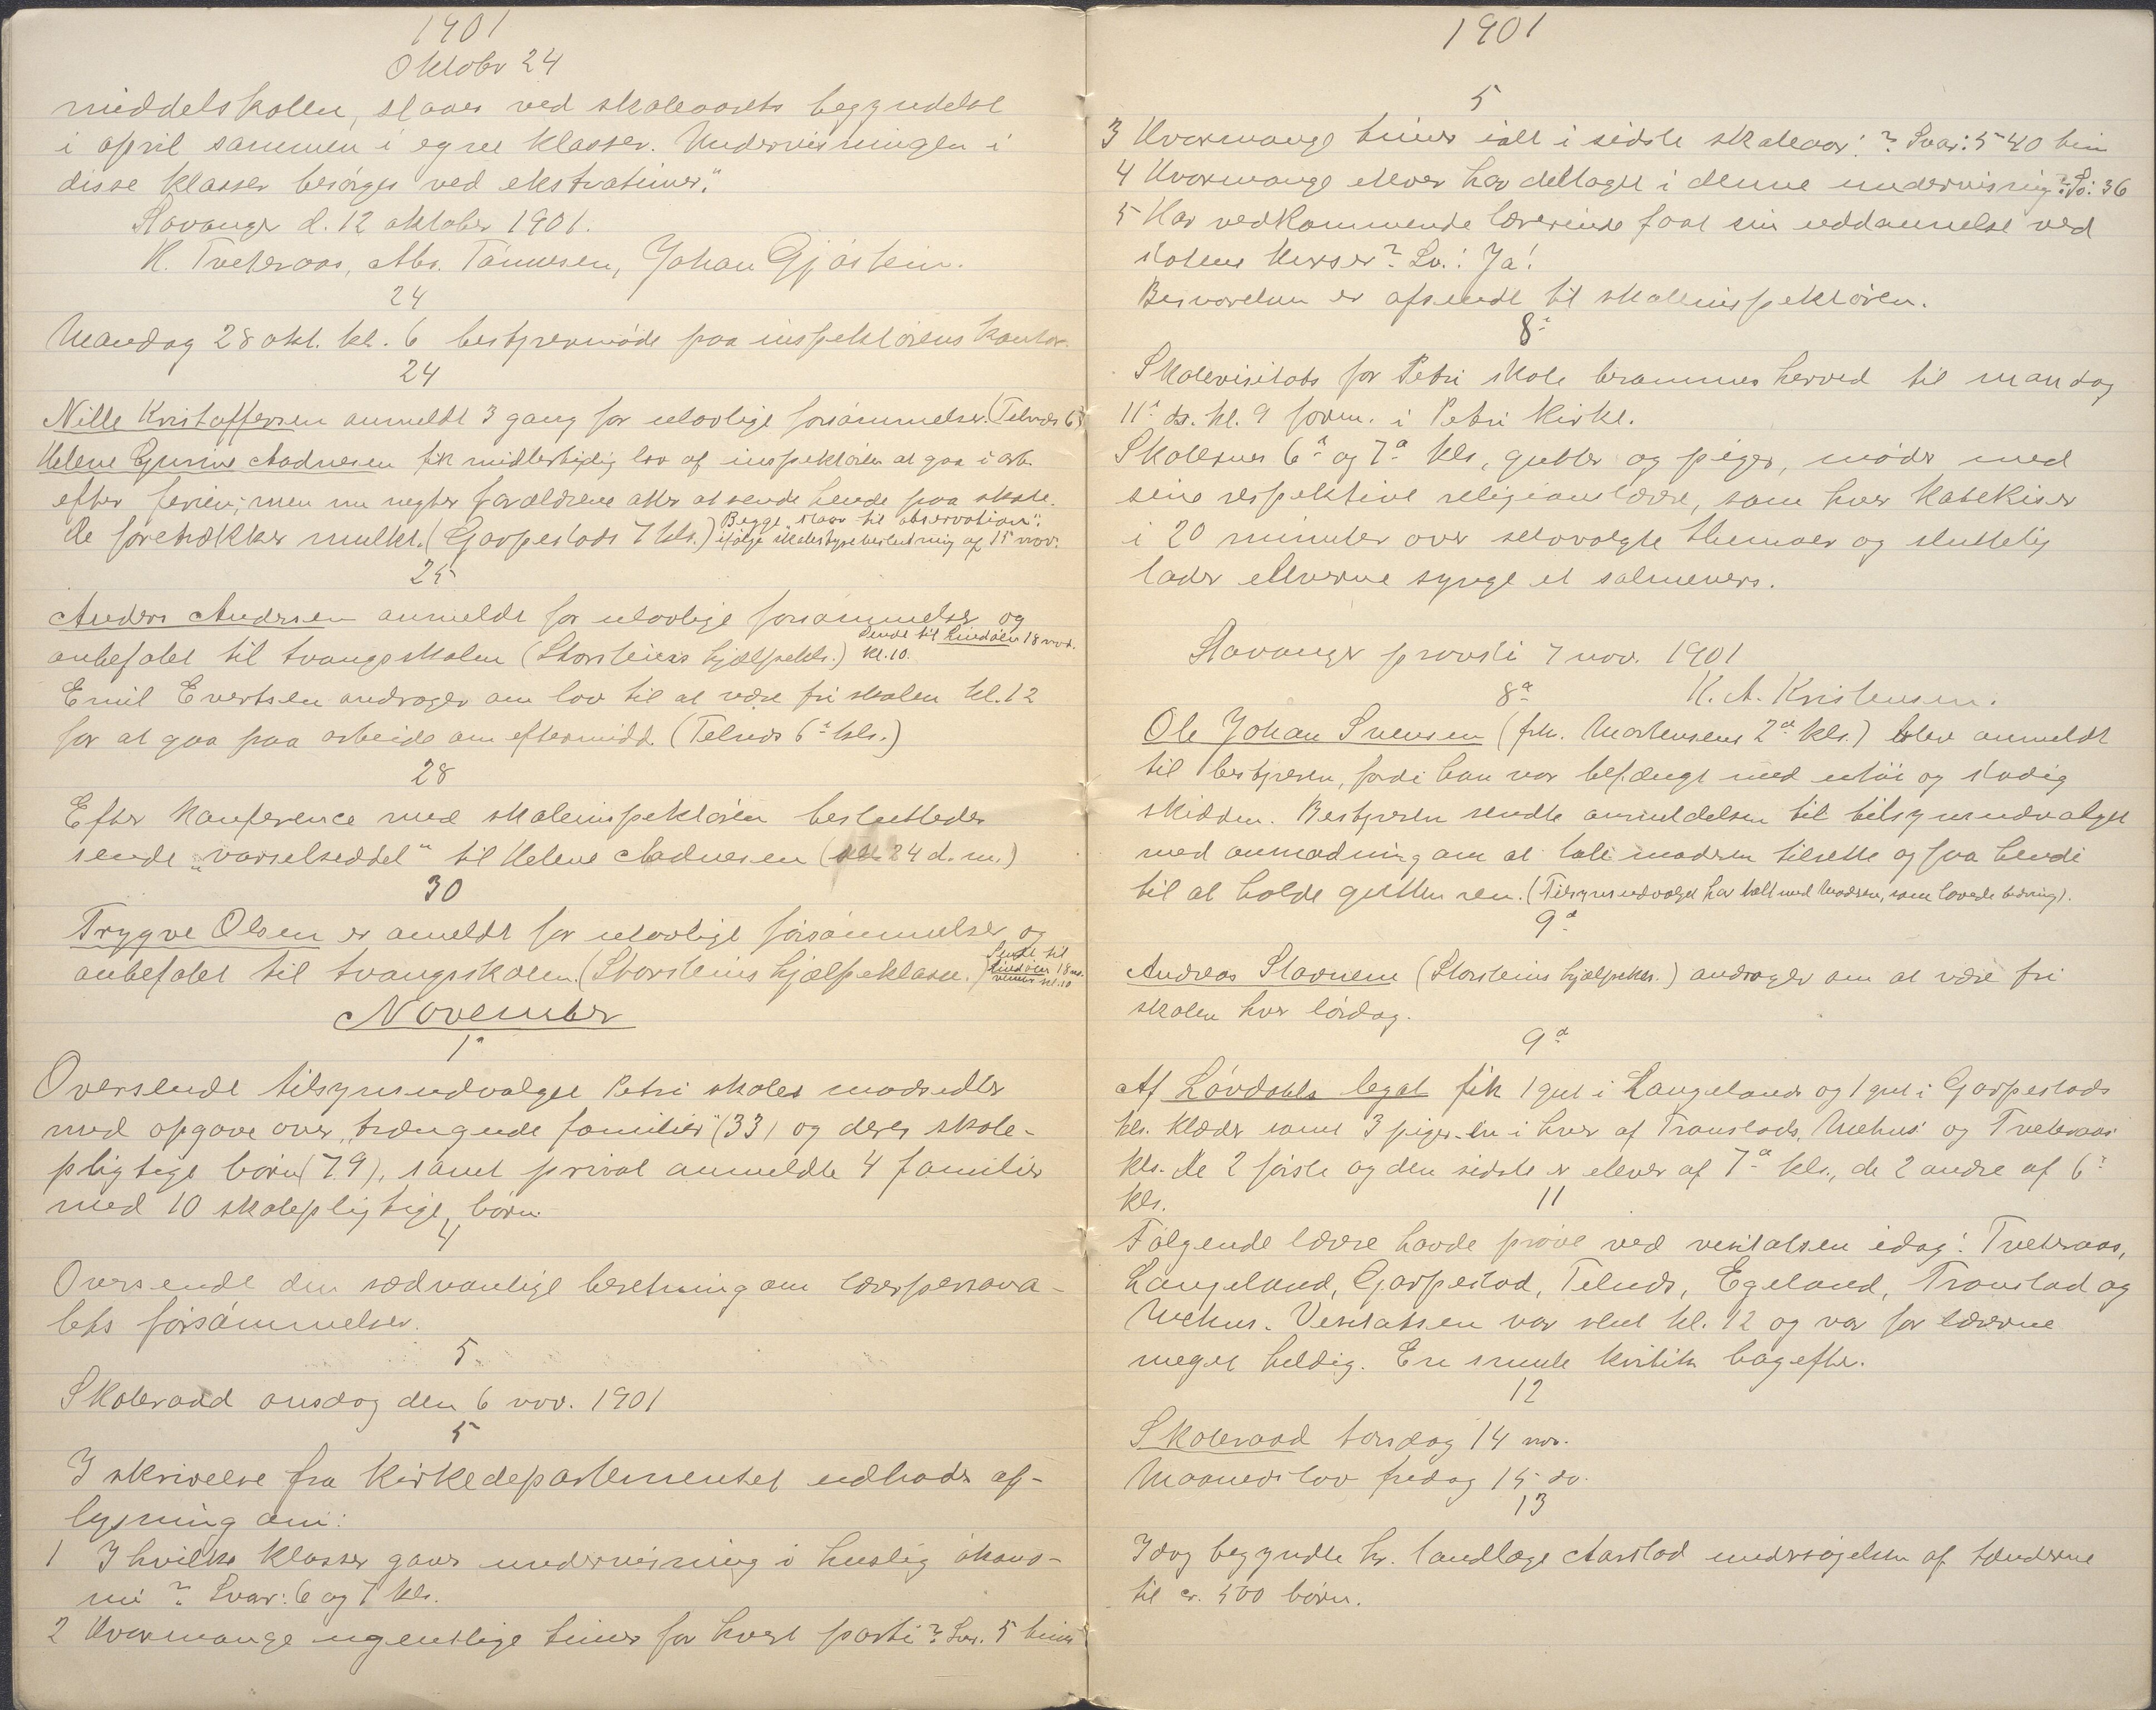 1901
Oktober 24
middelskolen, slaaes ved skoleaarets begyndelse
i april sammen i egne klasser. Undervisningen i
disse klasser besörges ved ekstratimer."
Stavanger d. 12 oktober 1901.
K. Tveteraas, Abr. Tönnesen, Johan Gjöstein.
24
Mandag 28 okt. kl. 6 bestyrermöde paa inspektörens kontor.
24
Nille Kristoffersen anmeldt 3 gang for ulovlige forsömmelser. (Telnes 6
Helene Gurine Aadnesen fik midlertidig lov af inspektören at gaa i arb.
efter ferien; men nu negter forældrene atter at sende hende paa skole.
De foretrækker mulkt. (Garpestads 7 kls.) Begge staar til "observation".
ifölge skolestyrebeslutning af 15 nov.
25
Anders Andersen anmeldt for ulovlige forsömmelser og
anbefalet til tvangsskolen (Storsteins hjælpekls.) Sendt til Lindöen 18 nov.
kl. 10.
Emil Evertsen andrager om lov til at være fri skolen kl. 12
for at gaa paa arbeide om eftermidd. (Telnes 6a kls.)
28
Efter konference med skoleinspektören besluttedes
sende "varselseddel" til Helene Aadnesen (24 d. m.)
30
Trygve Olsen er ameldt for ulovlige forsömmelser og
anbefalet til tvangsskolen. (Storsteins hjælpeklasse.) Sendt til
Lindöen 18 no-
vember kl. 10
November
1a
Oversendt tilsynsudvalget Petri skoles madsedler
med opgave over "trængende familier" (33) og deres skole-
pligtige börn (79), samt privat anmeldte 4 familier
med 10 skolepligtige börn.
4
Oversendt den sædvanlige beretning om lærerpersona-
lets forsömmelser.
5
Skoleraad onsdag den 6 nov. 1901
5
I skrivelse fra kirkedepartementet udbades op-
lysning om:
1 I hvilke klasser gaves undervisning i huslig ökono-
mi? Svar: 6 og 7 kls.
2 Hvormange ugentlige timer for hvert parti? Svar. 5 timer
1901
5
3 Hvormange timer ialt i sidste skoleaar:? Svar: 540 tim
4 Hvormange elever har deltaget i denne undervisning? Sv: 36
5 Har vedkommende lærerinde faat sin uddannelse ved
statens kurser? Sv.: Ja!
Besvarelsen er afsendt til skoleinspektören.
8a
Skolevisitats for Petri skole berammes herved til mandag
11a ds. kl. 9 form. i Petri kirke.
Skolernes 6a og 7a kls, gutter og piger, möder med
sine respektive religionslærere, som hver katekiser
i 20 minuter over selvvalgte themaer og sluttelig
lader eleverne synge et salmevers.
Stavanger provsti 7 nov. 1901
K. A. Kristensen.
8a
Ole Johan Svensen (frk. Mortensens 2a kls.) blev anmeldt
til bestyreren, fordi han var befængt med utöi og stadig
skidden. Bestyreren sendte anmeldelsen til tilsynsudvalget
med anmodning om at tale moderen tilrette og faa hende
til at holde gutten ren. (Tilsynsudvalget har talt med moderen, som lovede bedring).
9a
Andreas Stavnem (Storsteins hjælpekls.) andrager om at være fri
skolen hver lördag.
9a
Af Lövdahls legat fik 1 gut i Langelands og 1 gut i Garpestads
kls. klæder samt 3 piger - en i hver af Transtads, Mehus' og Tveteraas'
kls. De 2 förste og den sidste er elever af 7a kls., de 2 andre af 6a
kls.
11
Fölgende lærere havde pröve ved visitatsen idag: Tveteraas,
Langeland, Garpestad, Telnes, Egeland, Transtad og
Mehus. Visitatsen var slut kl. 12 og var for lærerne
meget heldig. En smule kritik bagefter.
12
Skoleraad torsdag 14 nov.
Maanedslov fredag 15 do.
13
Idag begyndte hr. tandlæge Aarstad undersögelsen af tænderne
til cr. 500 börn.